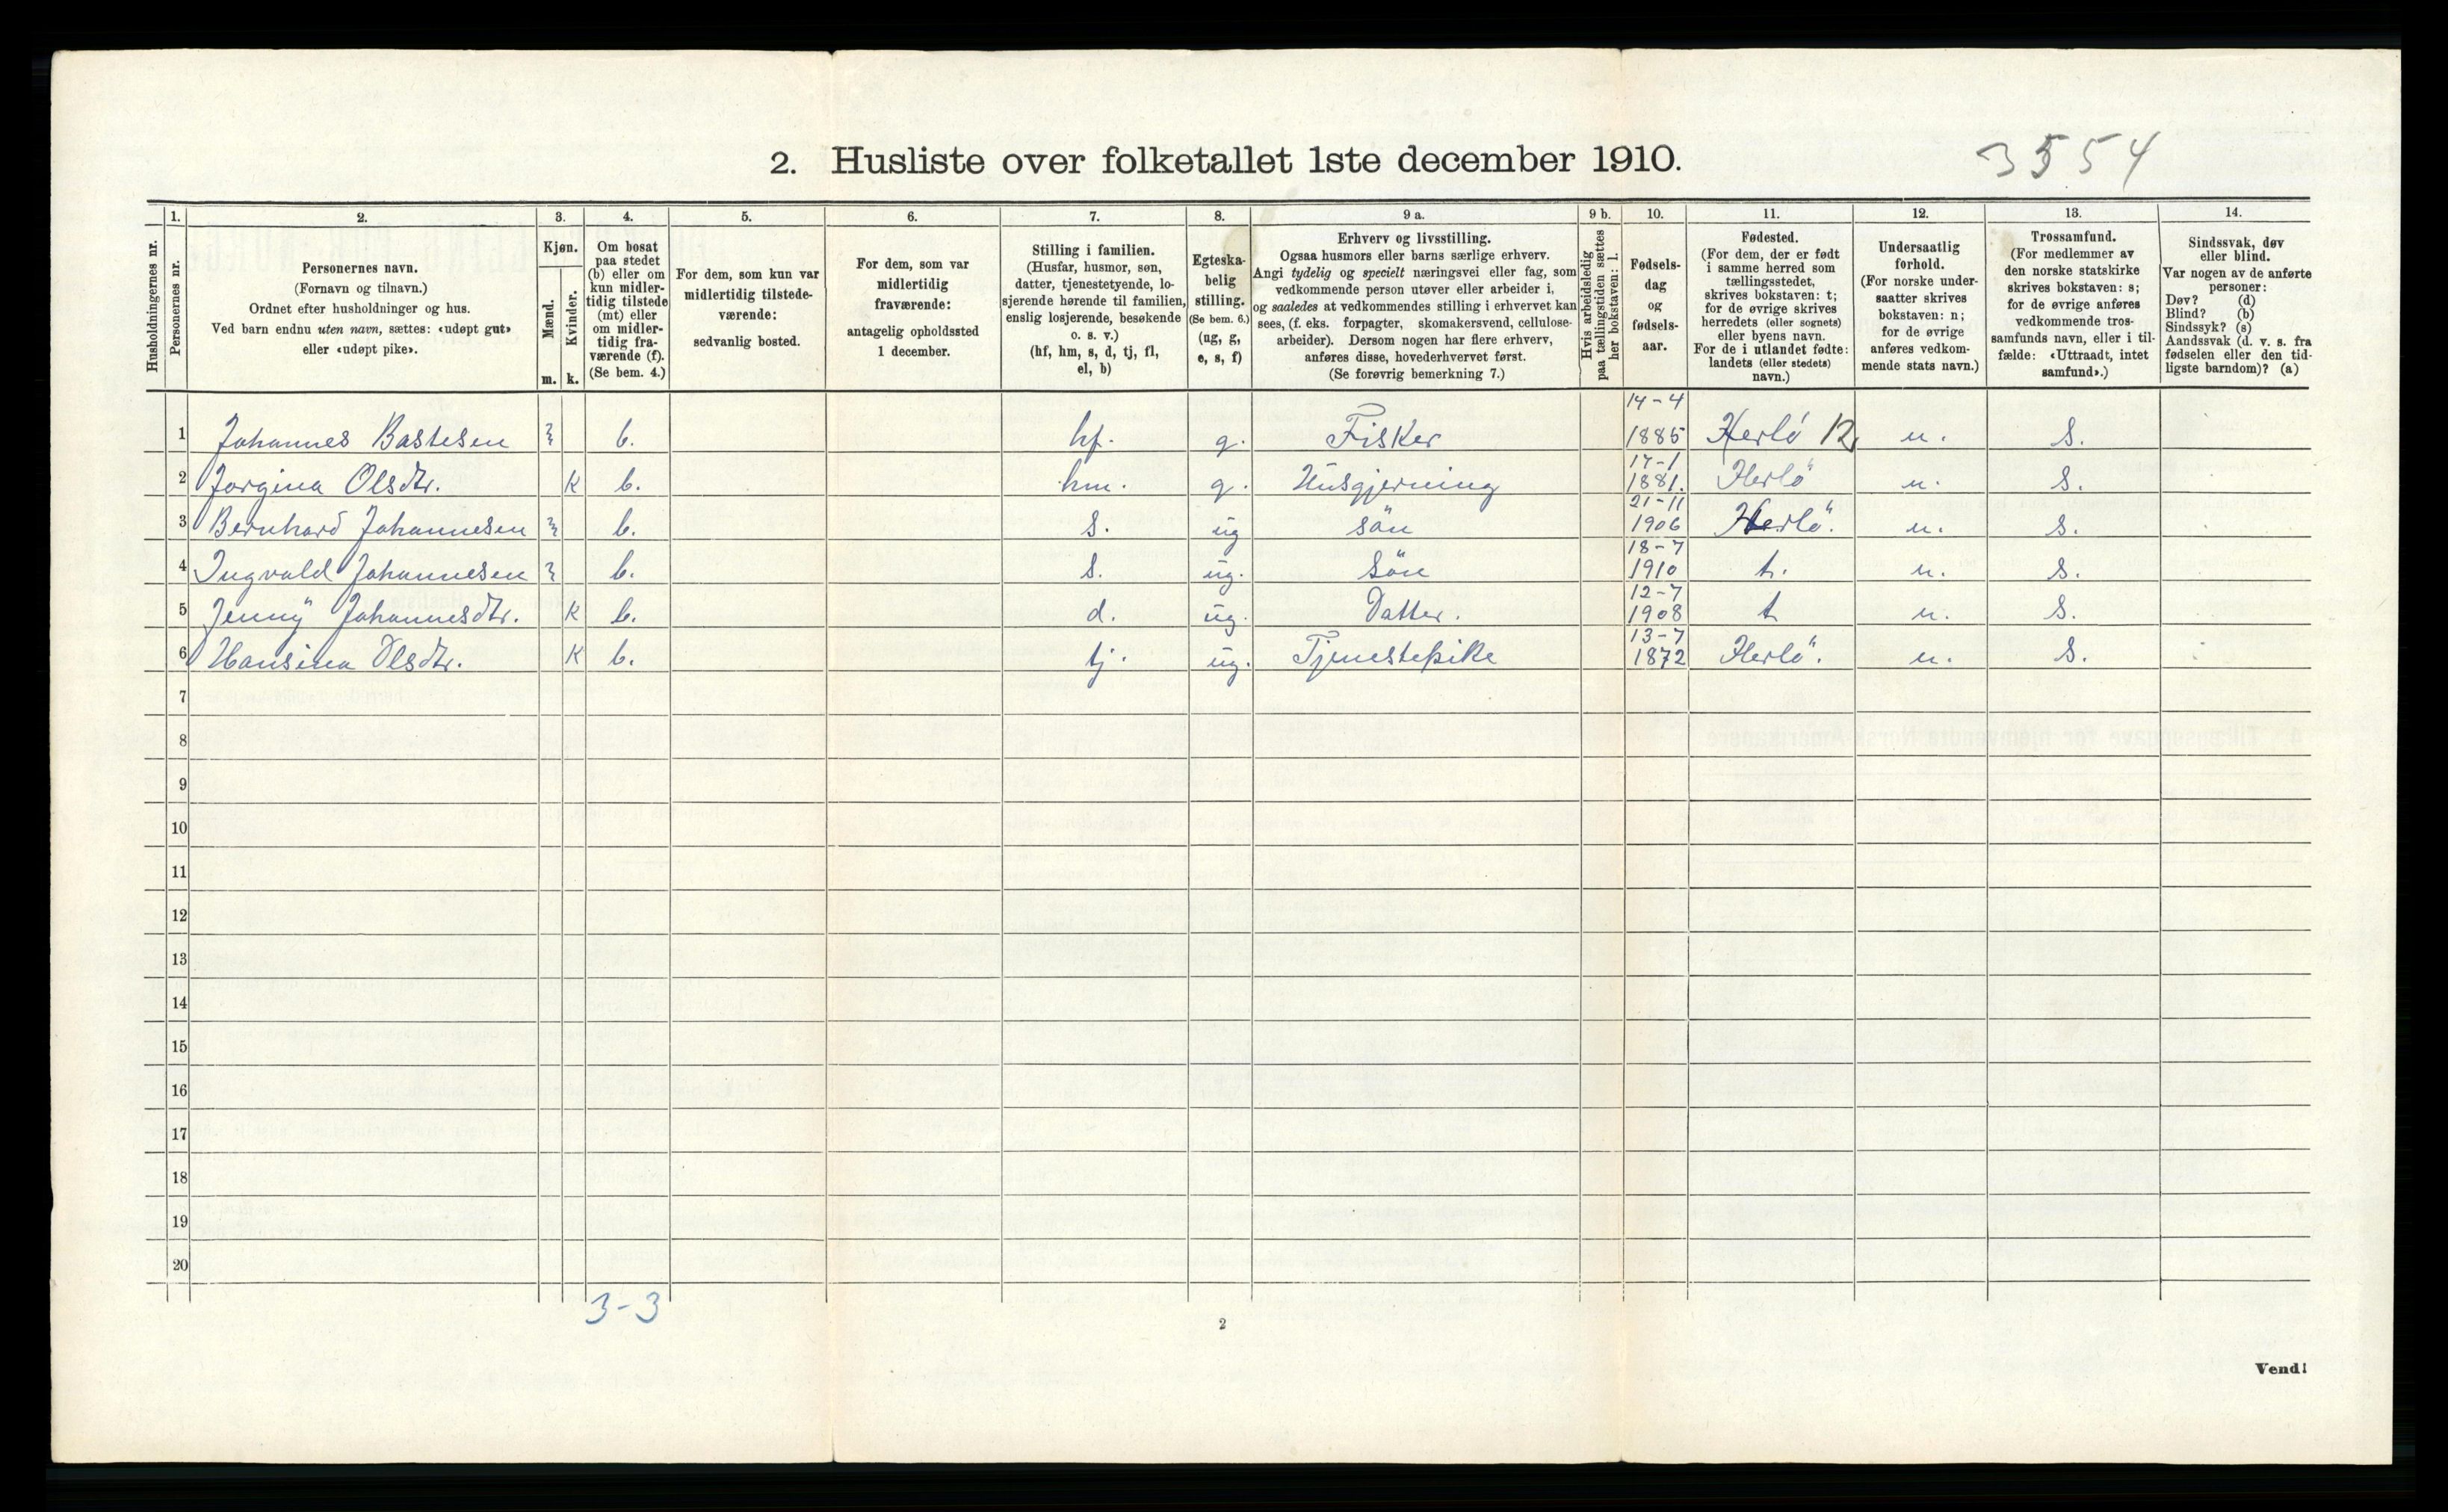 2. Husliste over folketallet 1ste december 1910.
3554
Husholdningernes nr.
1. Personernes nr.
2. Personernes navn. (Fornavn og tilnavn.) Ordnet efter husholdninger og hus. Ved barn endnu uten navn, sættes: «udøpt gut» eller «udøpt pike».
3. Kjøn. Mænd. m. Kvinder. k.
4. Om bosat paa stedet (b) eller om kun midlertidig tilstede (mt) eller om midlertidig fraværende (f). (Se bem. 4.)
5. For dem, som kun var midlertidig tilstedeværende: sedvanlig bosted.
6. For dem, som var midlertidig fraværende: antagelig opholdssted 1 december.
7. Stilling i familien. (Husfar, husmor, søn, datter, tjenestetyende, losjerende hørende til familien, enslig losjerende, besøkende o. s. v.) (hf, hm, s, d, tj, fl, el, b)
8. Egteskabelig stilling. (Se bem. 6.) (ug, g, e, s, f)
9 a. Erhverv og livsstilling. Ogsaa husmors eller barns særlige erhverv. Angi tydelig og specielt næringsvei eller fag, som vedkommende person utøver eller arbeider i, og saaledes at vedkommendes stilling i erhvervet kan sees, (f. eks. forpagter, skomakersvend, cellulosearbeider). Dersom nogen har flere erhverv, anføres disse, hovederhvervet først. (Se forøvrig bemerkning 7.)
9 b. Hvis arbeidsledig paa tællingstiden sættes her bokstaven: l.
10. Fødselsdag og fødselsaar.
11. Fødested. (For dem, der er født i samme herred som tællingsstedet, skrives bokstaven: t; for de øvrige skrives herredets (eller sognets) eller byens navn. For de i utlandet fødte: landets (eller stedets) navn.)
12. Undersaatlig forhold. (For norske undersaatter skrives bokstaven: n; for de øvrige anføres vedkommende stats navn.)
13. Trossamfund. (For medlemmer av den norske statskirke skrives bokstaven: s; for de øvrige anføres vedkommende trossamfunds navn, eller i tilfælde: «Uttraadt, intet samfund».)
14. Sindssvak, døv eller blind. Var nogen av de anførte personer: Døv? (d) Blind? (b) Sindssyk? (s) Aandssvak (d. v. s. fra fødselen eller den tidligste barndom)? (a)
1 Johannes Bastesen m b. hf. g. Fisker 14-4 1885 Herlö 12 n. S.
2 Jorgina Olsdtr. K b. hm. g. Husgjerning 17-1 1881. Herlö n. S.
3 Bernhard Johannesen m b. s. ug sön 21-11 1906 Herlö. n. S.
4 Ingvald Johannesen m b. s. ug. Sön 18-7 1910 t. n. S.
5 Jenny Johannesdtr. K b. d. ug. Datter. 12-7 1908 t n. S.
6 Hansina Olsdtr. K b. tj. ug. Tjenestepike 13-7 1872 Herlö. n. S.
7
8
9
10
11
12
13
14
15
16
17
18
19
20
3-3
2
Vend!